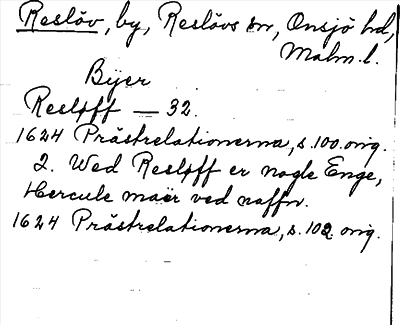 Reslöv, by, Reslövs sn, Onsjö hd,
Malm. l.
Bÿer
Resløff — 32.
1624 Prästrelationerna, s. 100. orig.
2. Wed Resløff er nogle Enge,
Hercule maer ved naffn.
1624 Prästrelationerna, s. 102 orig.